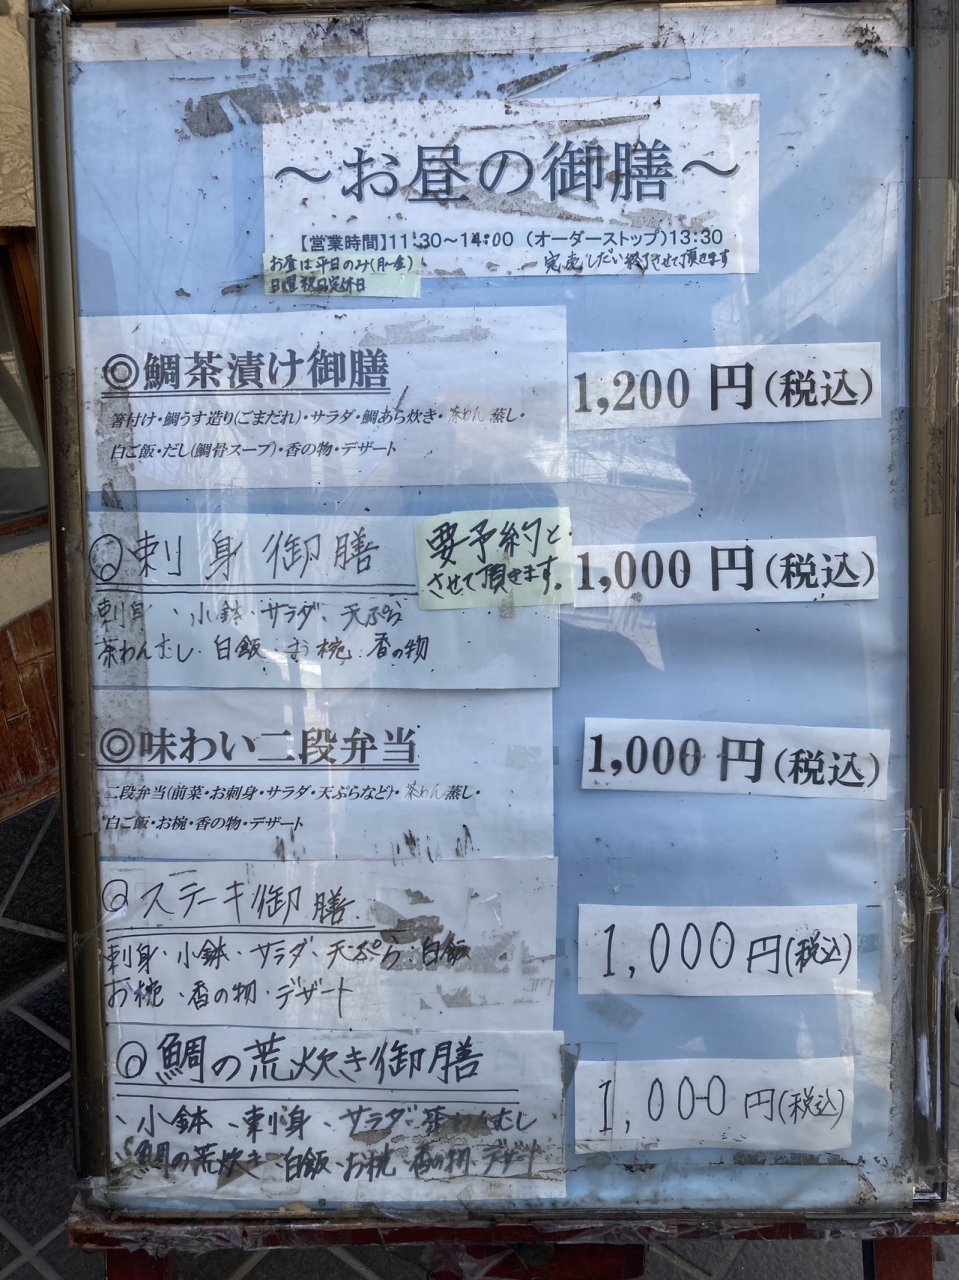 ～お昼の御膳～
【営業時間】11:30～14:00 （オーダーストップ）13:30
お昼は平日のみ(月~金)
日曜祝日定休日
完売しだい終了させて頂きます
◎鯛茶漬け御膳
1,200 円（税込）
箸付け・鯛うす造り(ごまだれ)・サラダ・鯛あら炊き・茶わん蒸し・
白ご飯・だし(鯛骨スープ)・香の物・デザート
◎刺身御膳
要予約と
させて頂きます。
1,000 円（税込）
刺身、小鉢・サラダ・天ぷら
茶わんむし・白飯・お椀・香の物
◎味わい二段弁当
1,000 円（税込）
二段弁当(前菜・お刺身・サラダ・天ぷらなど)・茶わん蒸し・
白ご飯・お椀・香の物・デザート
◎ステーキ御膳
1,000 円(税込)
刺身・小鉢・サラダ・天ぷら・白飯
お椀・香の物・デザート
◎鯛の荒炊き御膳
1,000 円(税込)
、小鉢、刺身、サラダ、茶わんむし
、鯛の荒炊き、白飯、お椀 香の物、デザート